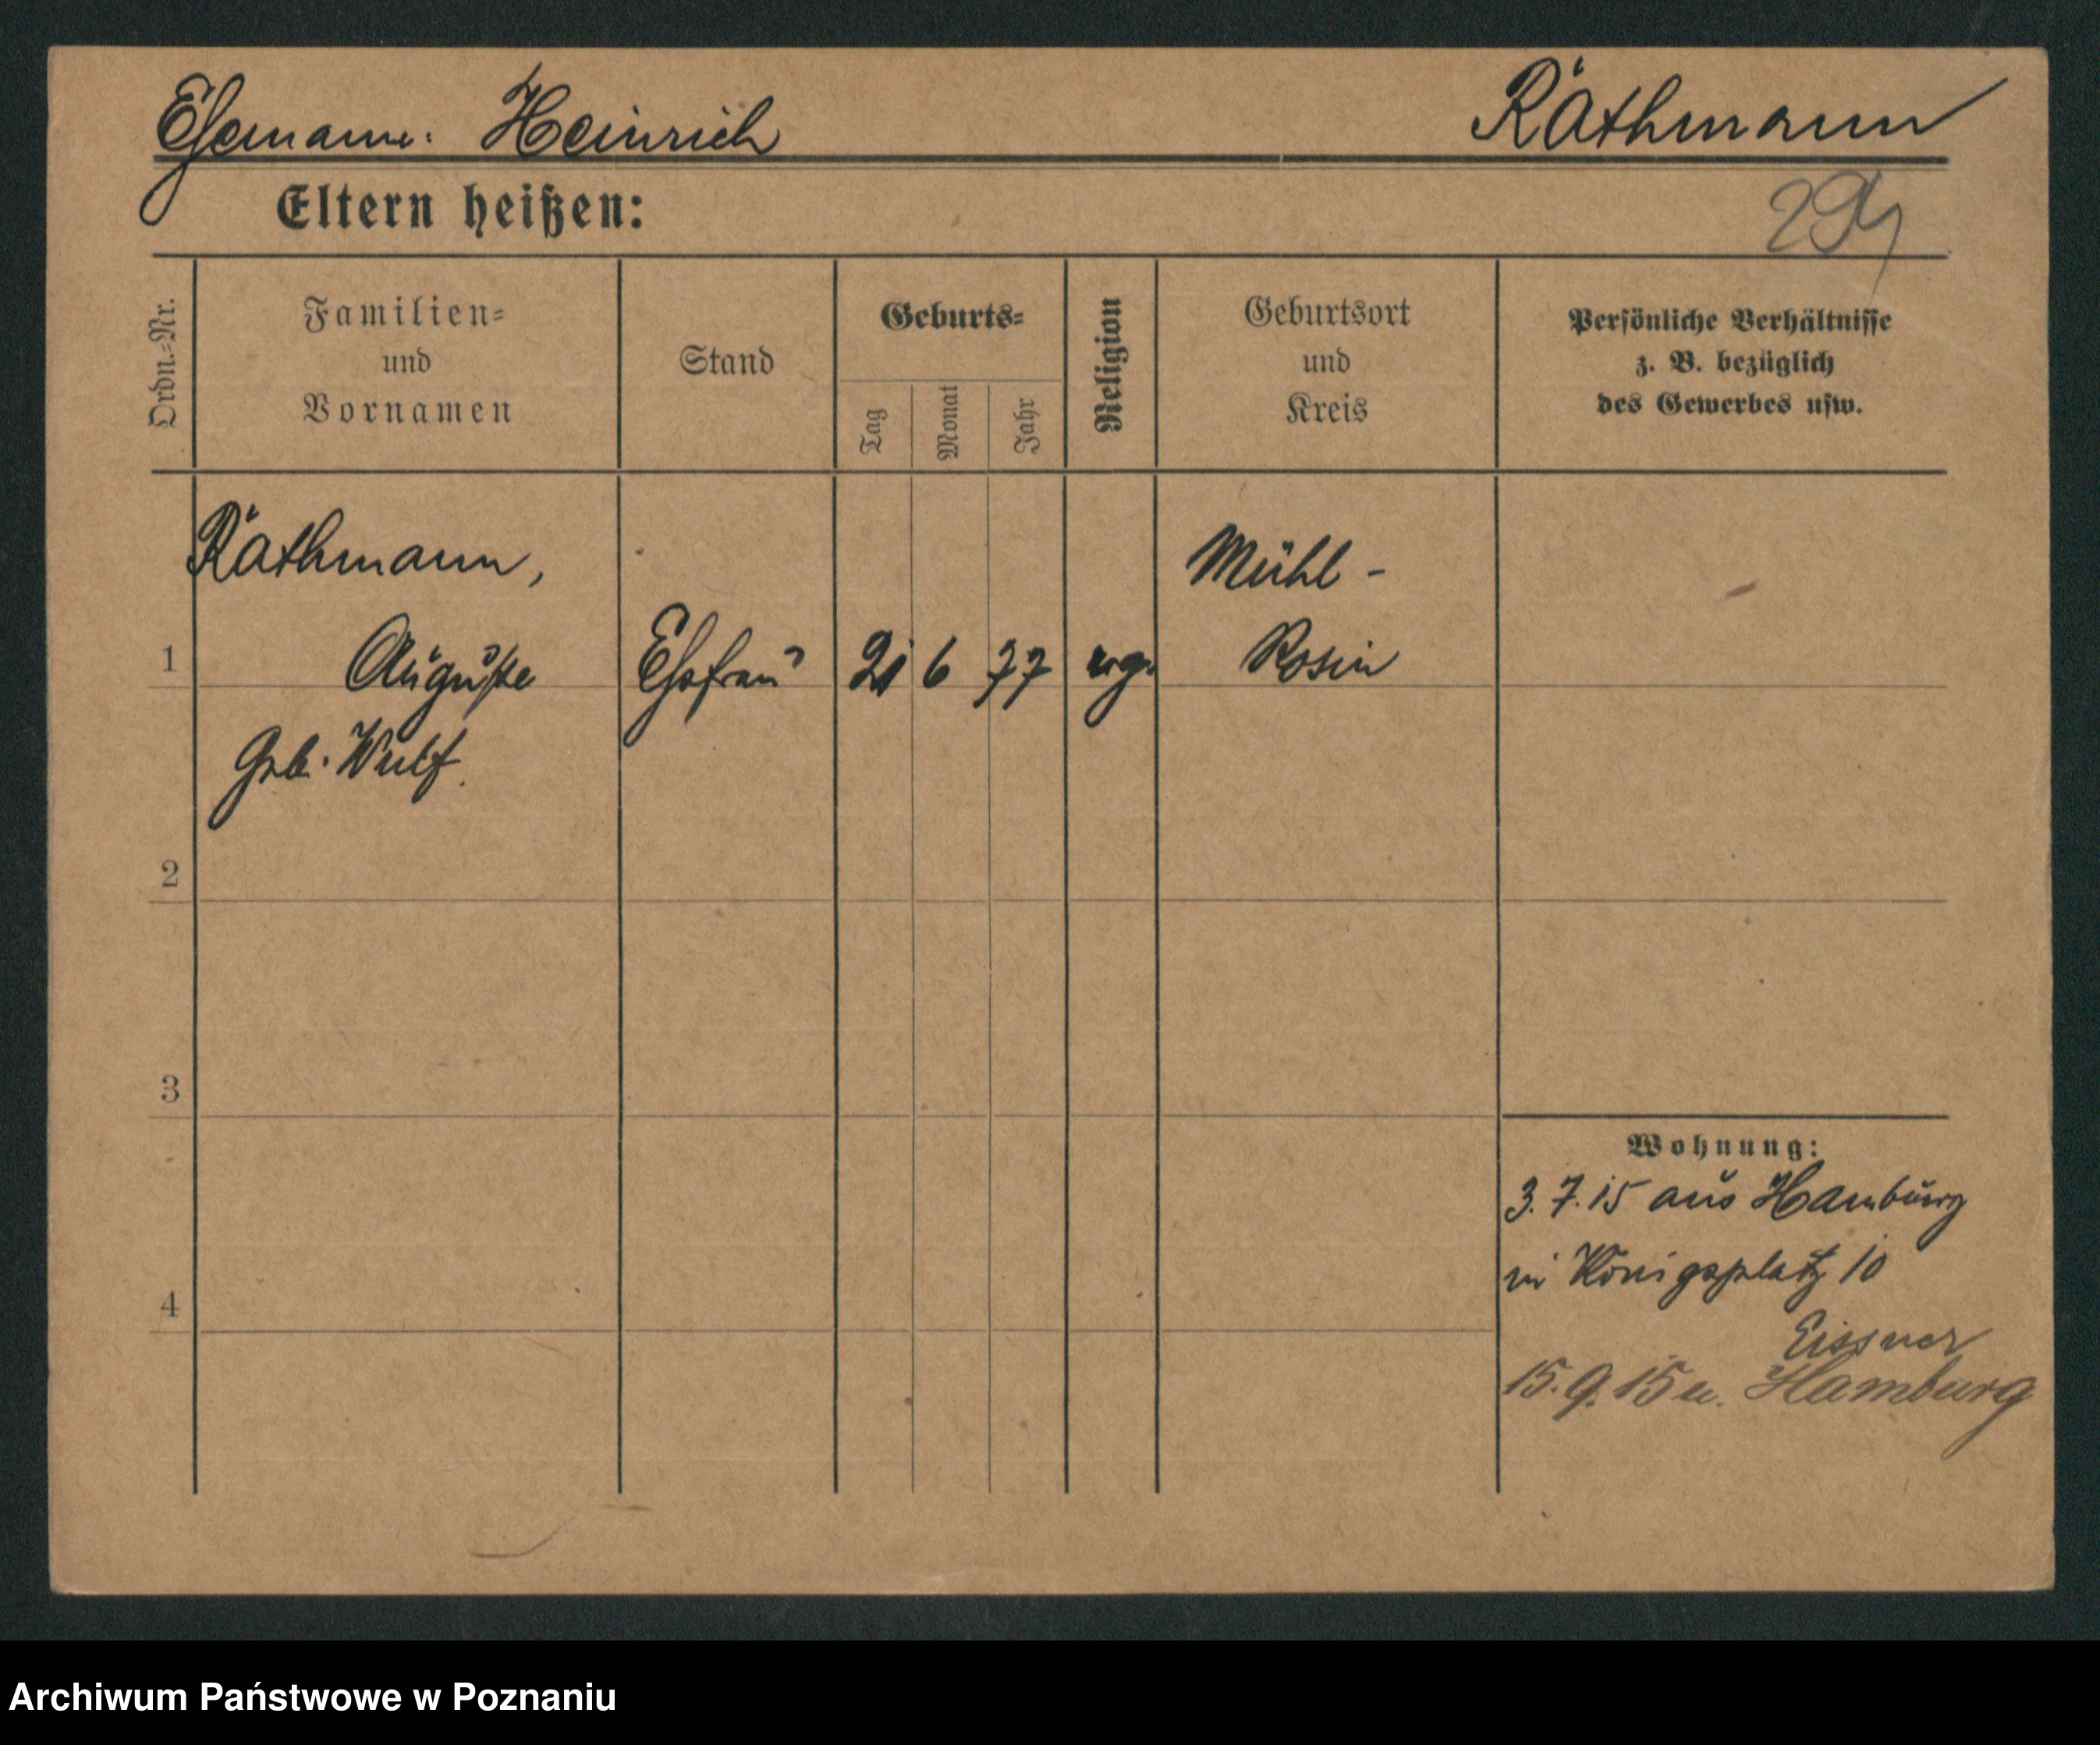 Ehemann: Heinrich Räthmann
Eltern heißen:
Ordn.=Nr.
Familien=
und
Vornamen
Stand
Geburts=
Tag
Monat
Jahr
Religion
Geburtsort
und
Kreis
Persönliche Verhältnisse
z. B. bezüglich
des Gewerbes usw.
Räthmann, Mühl -
1 Auguste Ehefrau 21 6 77 evgl. Rosin
Geb. Wulf.
2
3
4
Wohnung:
3. 7. 15 aus Hamburg
in Königsplatz 10
Eissner
15. 9. 15 n. Hamburg
Archiwum Państwowe w Poznaniu